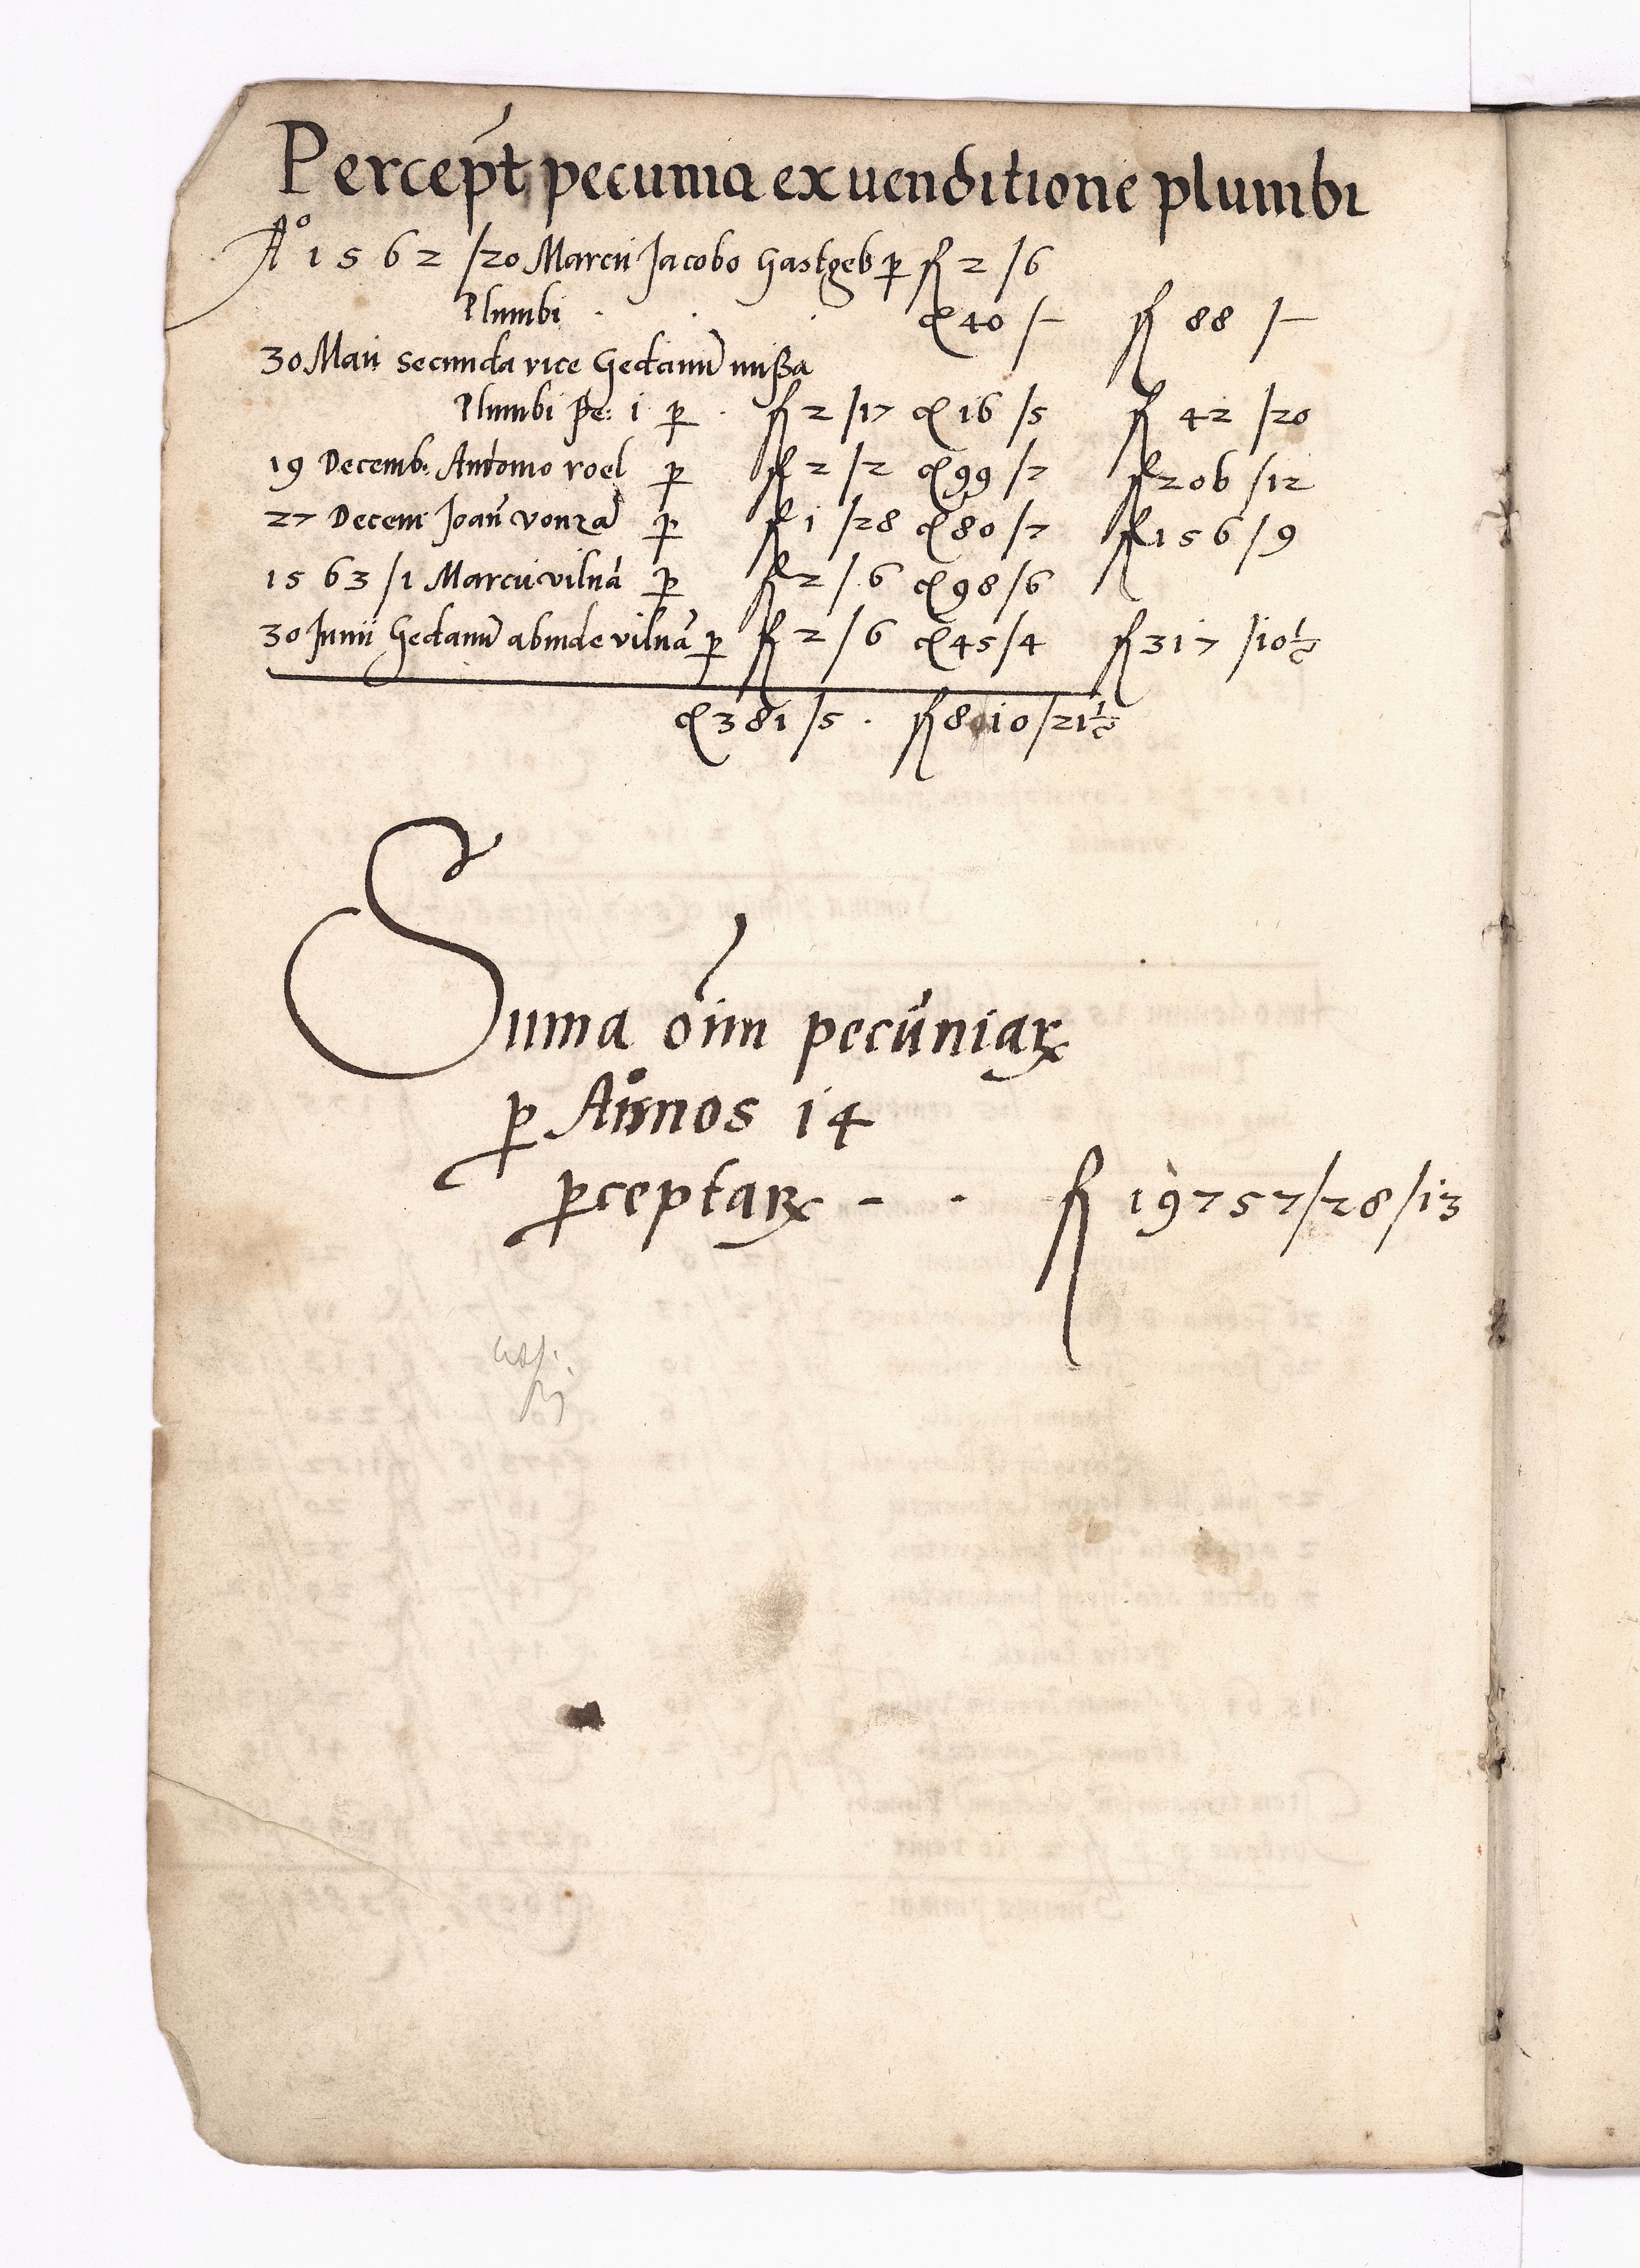 Percept pecunia ex uenditione plumbi
Aº 1562 /20 Marcii Jacobo Gastgeb p fl 2 /6
Plumbi . . . q 40 /— fl 88 /—
30 Maii secunda vice Gedanũ missa
Plumbi pe: 1 p . fl 2 /17 q 16 /5 fl 42 /20
19 Decemb: Antonio roel p fl 2 /2 q 99 /7 fl 206 /12
27 Decem Joañ vonrad p fl 1 /28 q 80 /7 fl 156 /9
1563 /1 Marcii vilnã p fl 2 /6 q 98 /6
30 Junii Gedanũ abinde vilnã p fl 2 /6 q 45 /4 fl 317 /10½
q 381 /5 . fl 810 /21½
Suma oim pecuniaꝝ
p Annos 14
ꝑceptaꝝ - . fl 19757/28/13